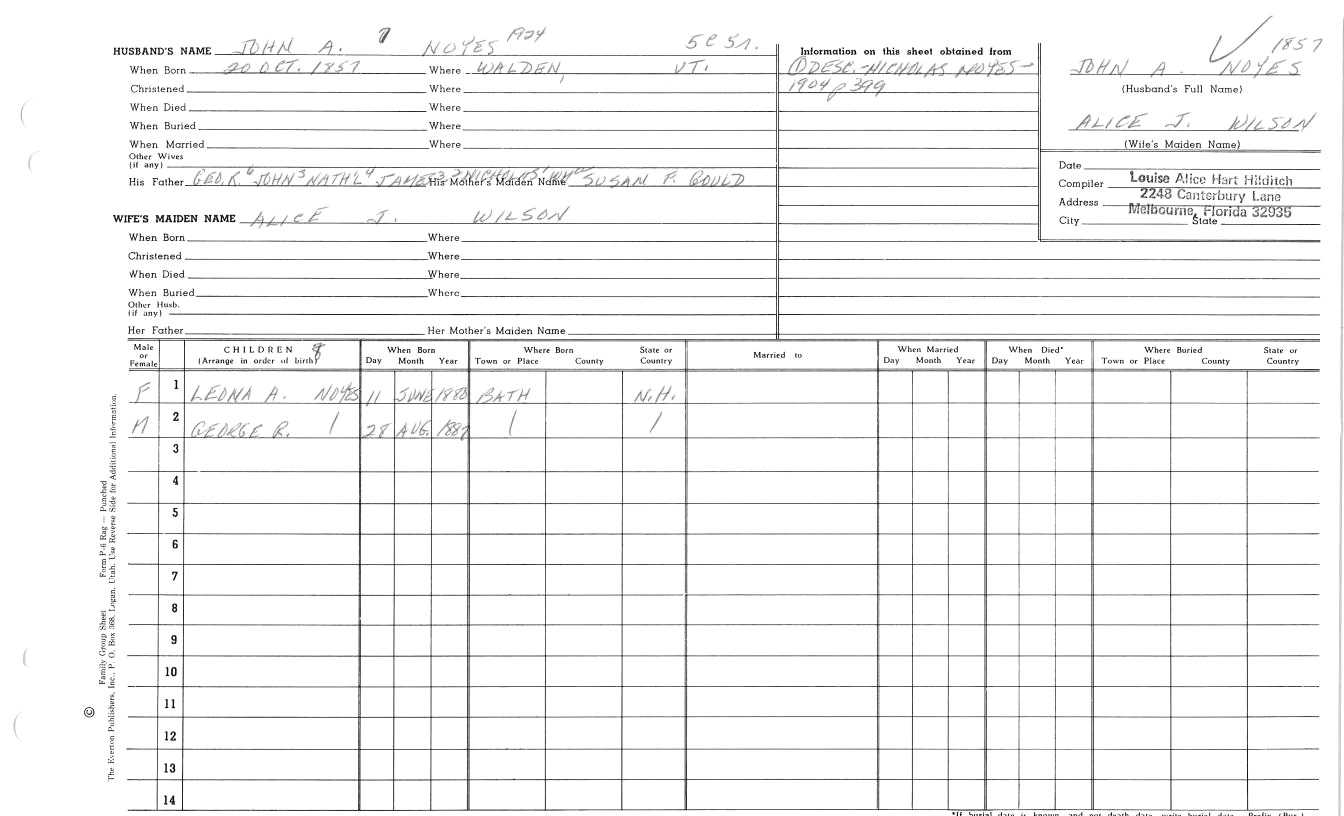 HUSBAND'S NAME JOHN A. 7 NOYES 1924
When Born 20 OCT. 1857 Where WALDEN, VT.
Christened Where
When Died Where
When Buried Where
When Married Where
Other Wives
(if any)
His Father GEO. R. 6 JOHN 5 NATH'L 4 His Mother's Maiden Name SUSAN F. GOULD
WIFE'S MAIDEN NAME ALICE J. WILSON
When Born Where
Christened Where
When Died Where
When Buried Where
Other Husb.
(if any)
Her Father Her Mother's Maiden Name
Information on this sheet obtained from
① DESC. - NICHOLAS NOYES -
1904 p 399
1857
JOHN A. NOYES
(Husband's Full Name)
ALICE J. WILSON
(Wife's Maiden Name)
Date
Compiler Louise Alice Hart Hilditch
Address 2248 Canterbury Lane
Melbourne, Florida 32935
City State
Male or Female CHILDREN 8 (Arrange in order of birth) When Born Day Month Year Where Born Town or Place County State or Country Married to When Married Day Month Year When Died* Day Month Year Where Buried Town or Place County State or Country
F 1 LEONA A. NOYES 11 JUNE 1880 BATH N.H.
M 2 GEORGE R. / 28 AUG. 1887 / /
3
4
5
6
7
8
9
10
11
12
13
14
Family Group Sheet Form P-6 Rag — Punched
© The Everton Publishers, Inc., P. O. Box 368, Logan, Utah. Use Reverse Side for Additional Information.
*If burial date is known, and not death date, write burial date. Prefix (Bur.)